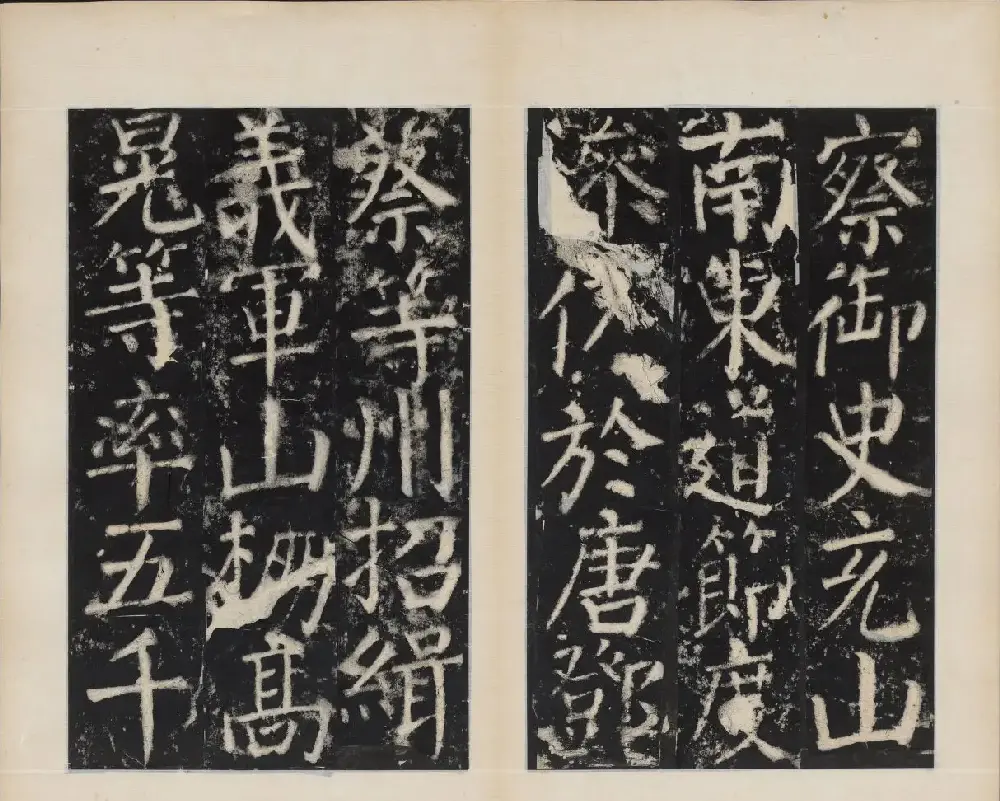 察御史充山
南東道節度
參仍於唐鄧
蔡等州招緝
義軍山棚高
晃等率五千